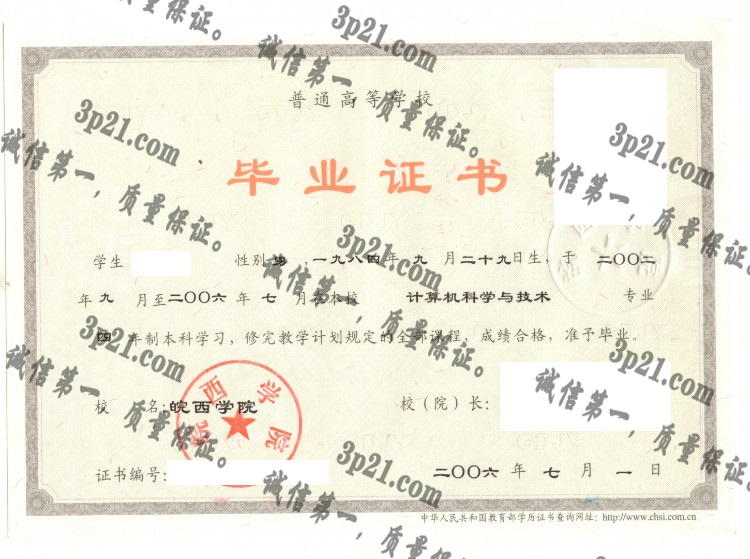 普通高等学校
毕业证书
学生 性别 男，一九八四年 九 月二十九日生，于 二〇〇二
年 九 月至二〇〇六年 七 月在本校 计算机科学与技术 专业
四 年制本科学习，修完教学计划规定的全部课程，成绩合格，准予毕业。
校 名：皖西学院 校（院）长：
皖西学院
证书编号： 二〇〇六 年 七 月 一 日
中华人民共和国教育部学历证书查询网址：http://www.chsi.com.cn
3p21.com
诚信第一，质量保证。
3p21.com
诚信第一，质量保证。
3p21.com
诚信第一，质量保证。
3p21.com
诚信第一，质量保证。
3p21.com
诚信第一，质量保证。
3p21.com
诚信第一，质量保证。
3p21.com
诚信第一，质量保证。
3p21.com
诚信第一，质量保证。